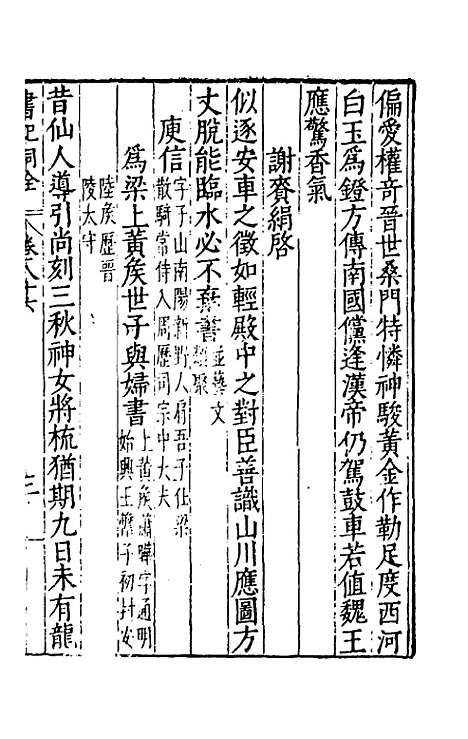 偏愛權奇晉世桑門特憐神駿黃金作勒足度西河
白玉爲鐙方傳南國儻逢漢帝仍駕鼓車若值魏王
應驚香氣
謝賚絹啓
似逐安車之徵如輕殿中之對臣善識山川應圖方
丈脫能臨水必不棄書並藝文類聚
庾信字子山南陽新野人肩吾子仕梁散騎常侍入周歷司宗中大夫
爲梁上黃矦世子與婦書上黃矦蕭曄字通明始興王憺子初封安陸矦歷晉陵太守
昔仙人導引尚刻三秋神女將梳猶期九日未有龍
書記洞詮 卷